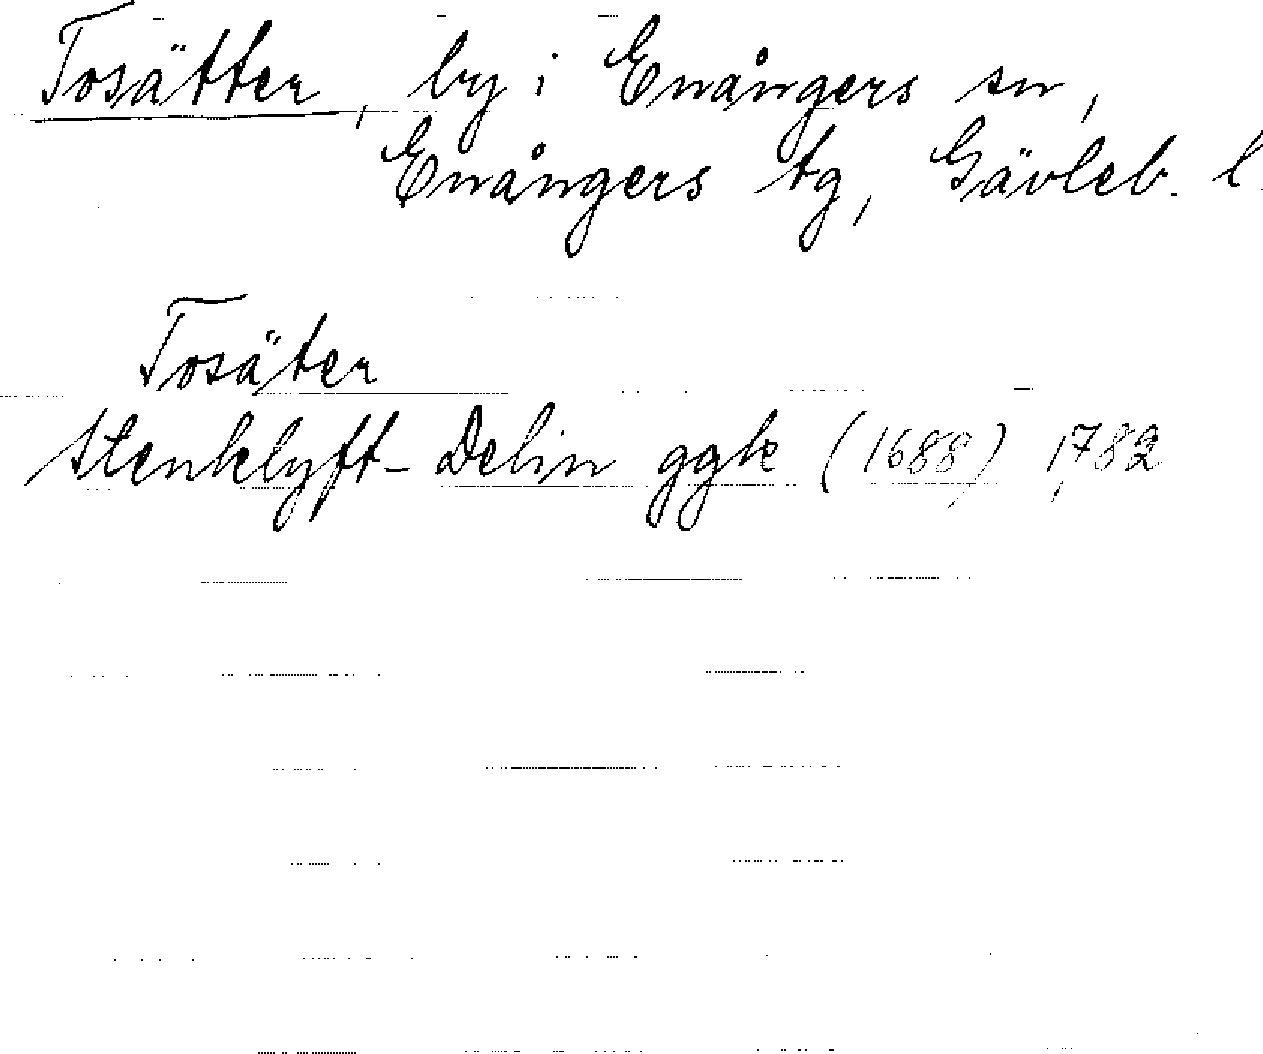 Tosätter, by i Enångers sn,
Enångers tg, Gävleb. l.
Tosäter
Stenklyft- Delin ggk (1688) 1782